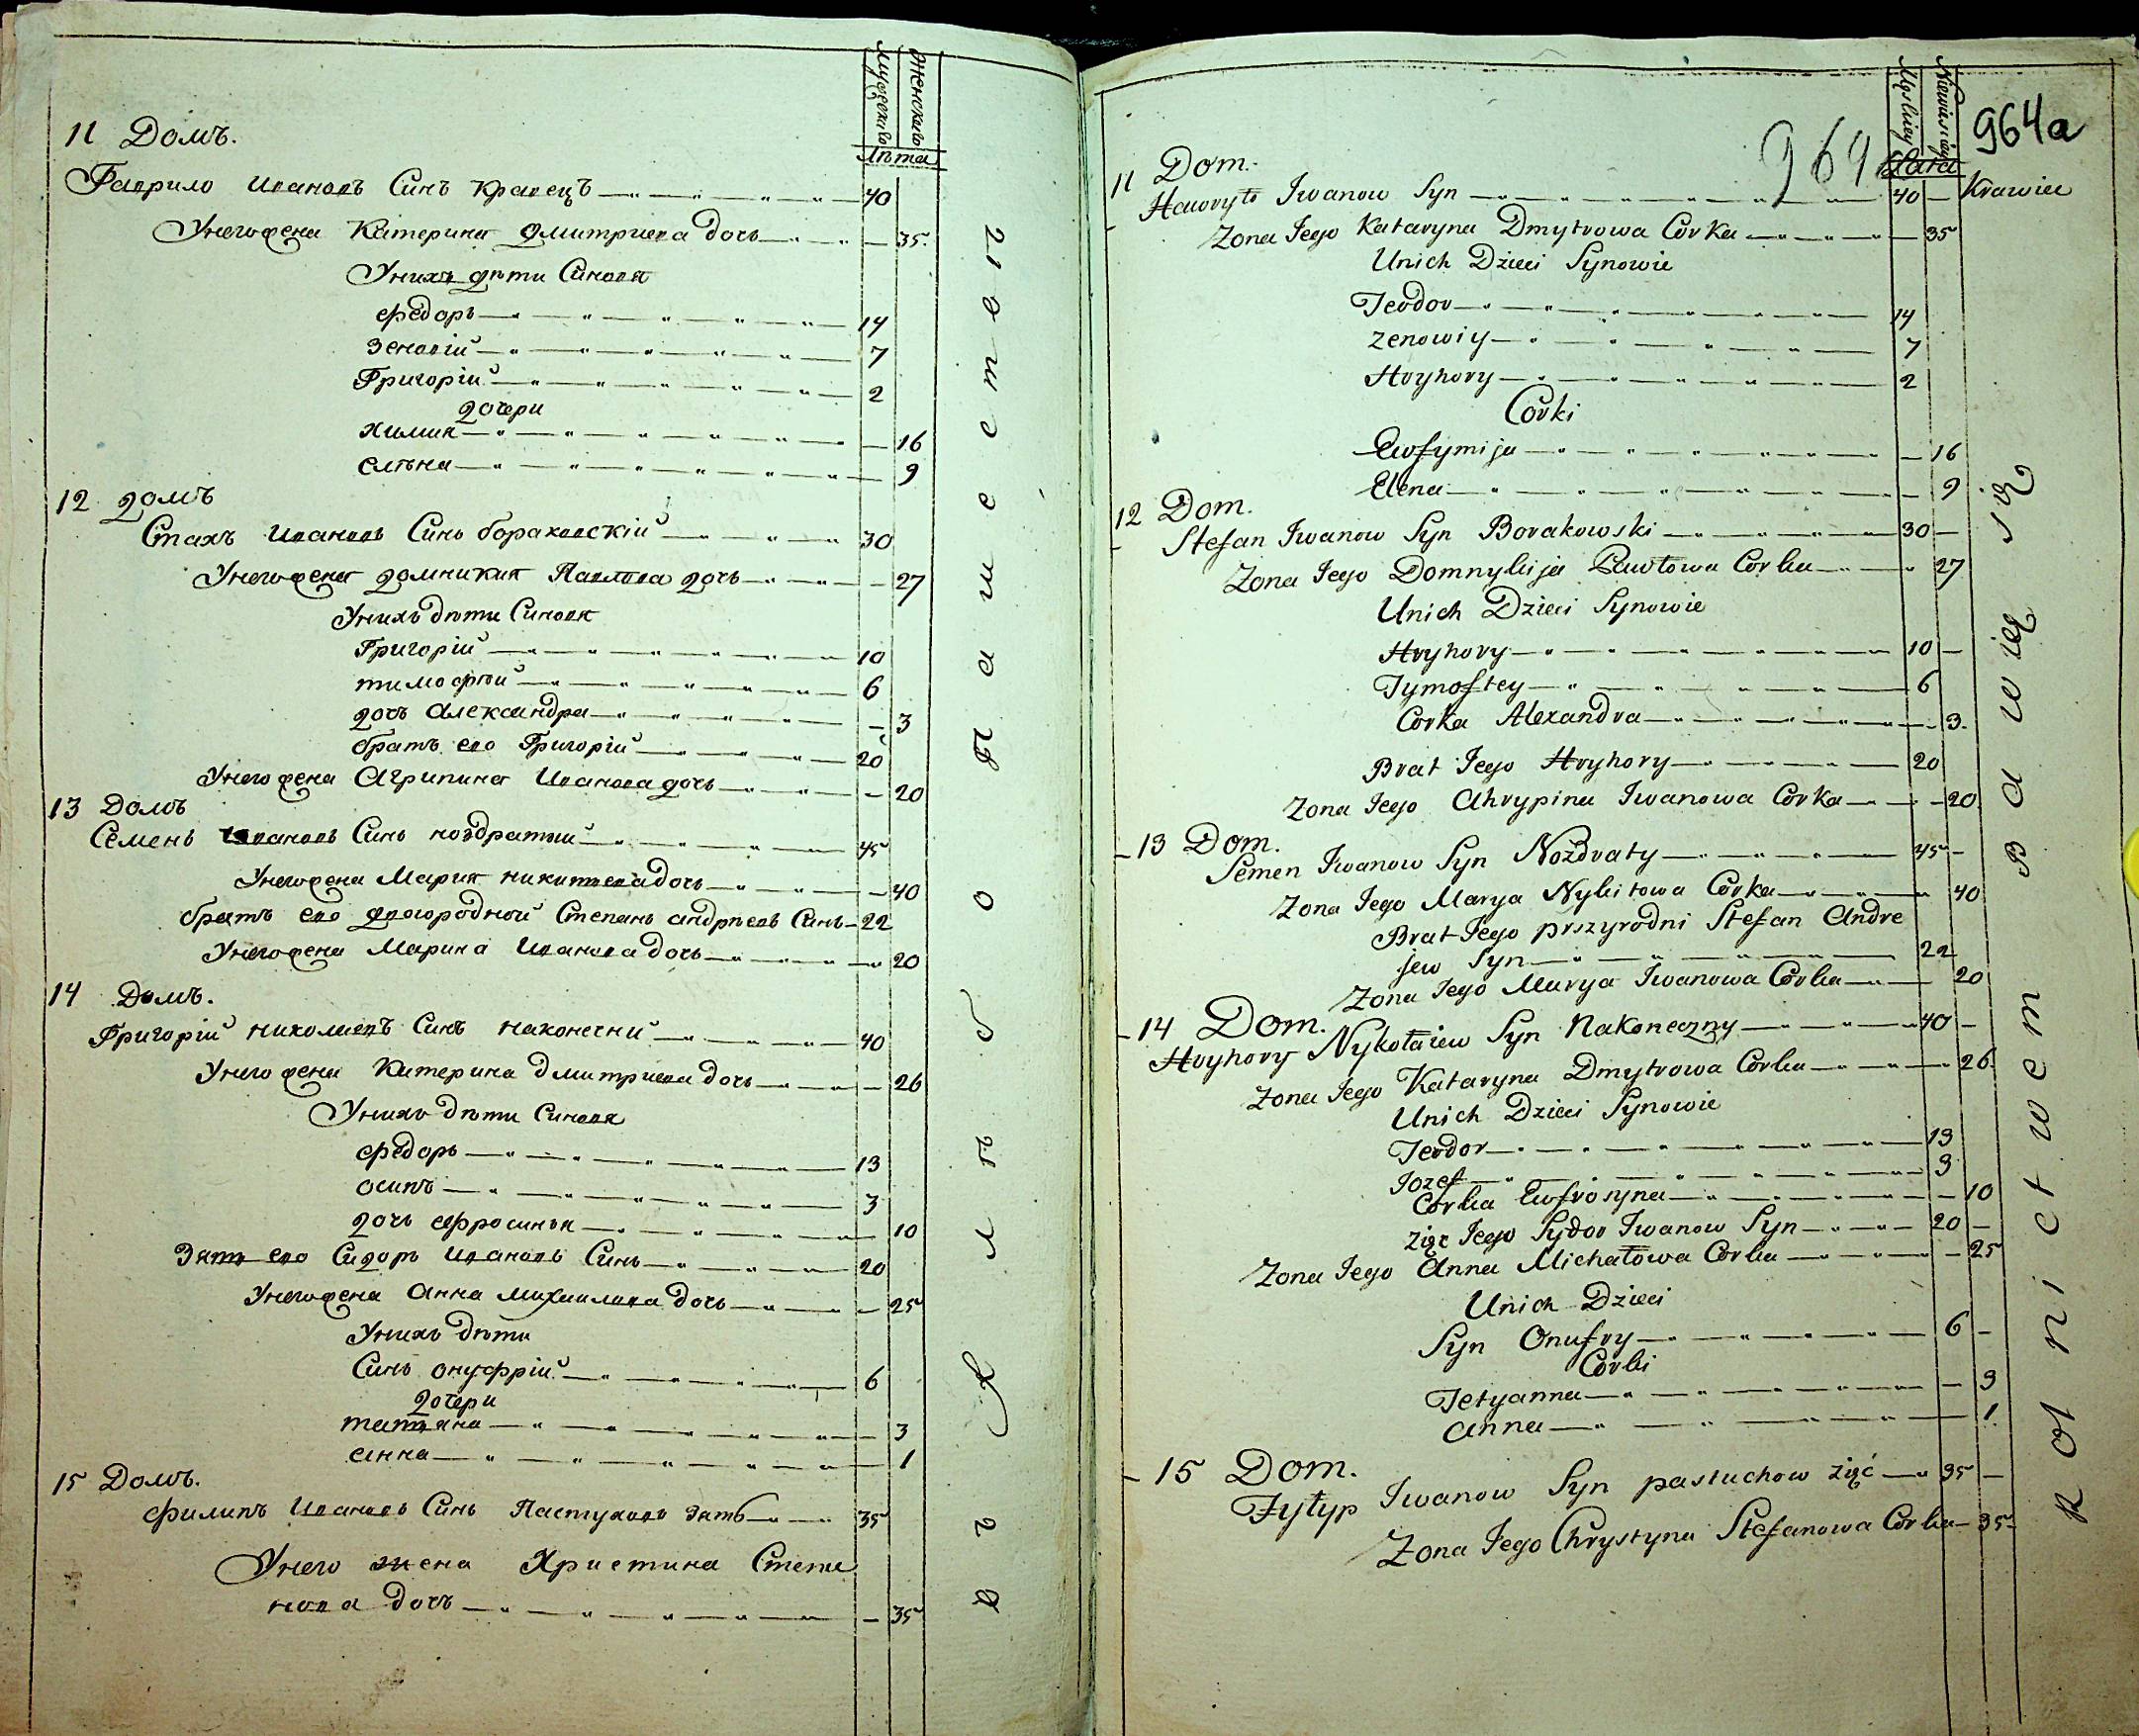 Мужескаго
Женскаго
Лѣта
11 Домъ.
Гаврило Ивановъ Синъ Кравецъ 40
Унегожена Катерина Дмитриева дочь 35.
Унихъ дѣти Синовя
Федоръ 14
Зеновій 7
Григорій 2
дочери
Химия 16
Елѣна 9
12 домъ
Стахъ Ивановъ Синъ бораковскій 30
Унегожена домникия Павлова дочь 27
Унихъ дѣти Синовя
Григорій 10
тимофѣй 6
дочь Александра 3
братъ его Григорій 20
Унегожена Агрипина Иванова дочь 20
13 Домъ
Семенъ Ивановъ Синъ ноздратий 45
Унегожена Мария никитиевадочь 40
братъ его двогородной Степанъ андрѣевъ Синъ 22
Унегожена Марина Иванова дочь 20
14 Домъ.
Григорій николаевъ Синъ наконечни 40
Унего жена Катерина Дмитриева дочь 26
Унихъ дѣти Синовя
Федоръ 13
осипъ 3
дочь ефросиния 10
Зять его Сидоръ Ивановъ Синъ 20
Унегожена Анна михаилова дочь 25
Унихъ дѣти
Синъ онуфрій 6
дочери
татяна 3
анна 1
15 Домъ.
филипъ Ивановъ Синъ Пастуховъ зять 35
Унего жена Христина Степа
нова дочь 35
964
964a
Męskiey
Niewiesciey
Lata
11 Dom.
Hawryło Iwanow Syn 40 Krawiec
Zona Jego Kataryna Dmytrowa Corka 35
Unich Dzieci Synowie
Teodor 14
Zenowiy 7
Hryhory 2
Corki
Ewfymija 16
Elena 9
12 Dom.
Stefan Iwanow Syn Borakowski 30
Zona Jego Domnykija Pawłowa Corka 27
Unich Dzieci Synowie
Hryhory 10
Tymoftey 6
Corka Alexandra 3.
Brat Jego Hryhory 20
Zona Jego Ahrypina Iwanowa Corka 20
13 Dom.
Semen Iwanow Syn Nozdraty 45
Zona Jego Marya Nykitowa Corka 40
Brat Jego przyrodni Stefan Andre
jew Syn 22
Zona Jego Marya Iwanowa Corka 20
14 Dom.
Hryhory Nykołaiew Syn Nakoneczny 40
Zona Jego Kataryna Dmytrowa Corka 26.
Unich Dzieci Synowie
Teodor 13
Jozef 3
Corka Ewfrosyna 10
Zięc Jego Sydor Iwanow Syn 20
Zona Jego Anna Michałowa Corka 25
Unich Dzieci
Syn Onufry 6
Corki
Tetyanna 3
Anna 1.
15 Dom.
Fyłyp Iwanow Syn pastuchow zięć 35
Zona Jego Chrystyna Stefanowa Corka 35
Rolnictwem Bawię się